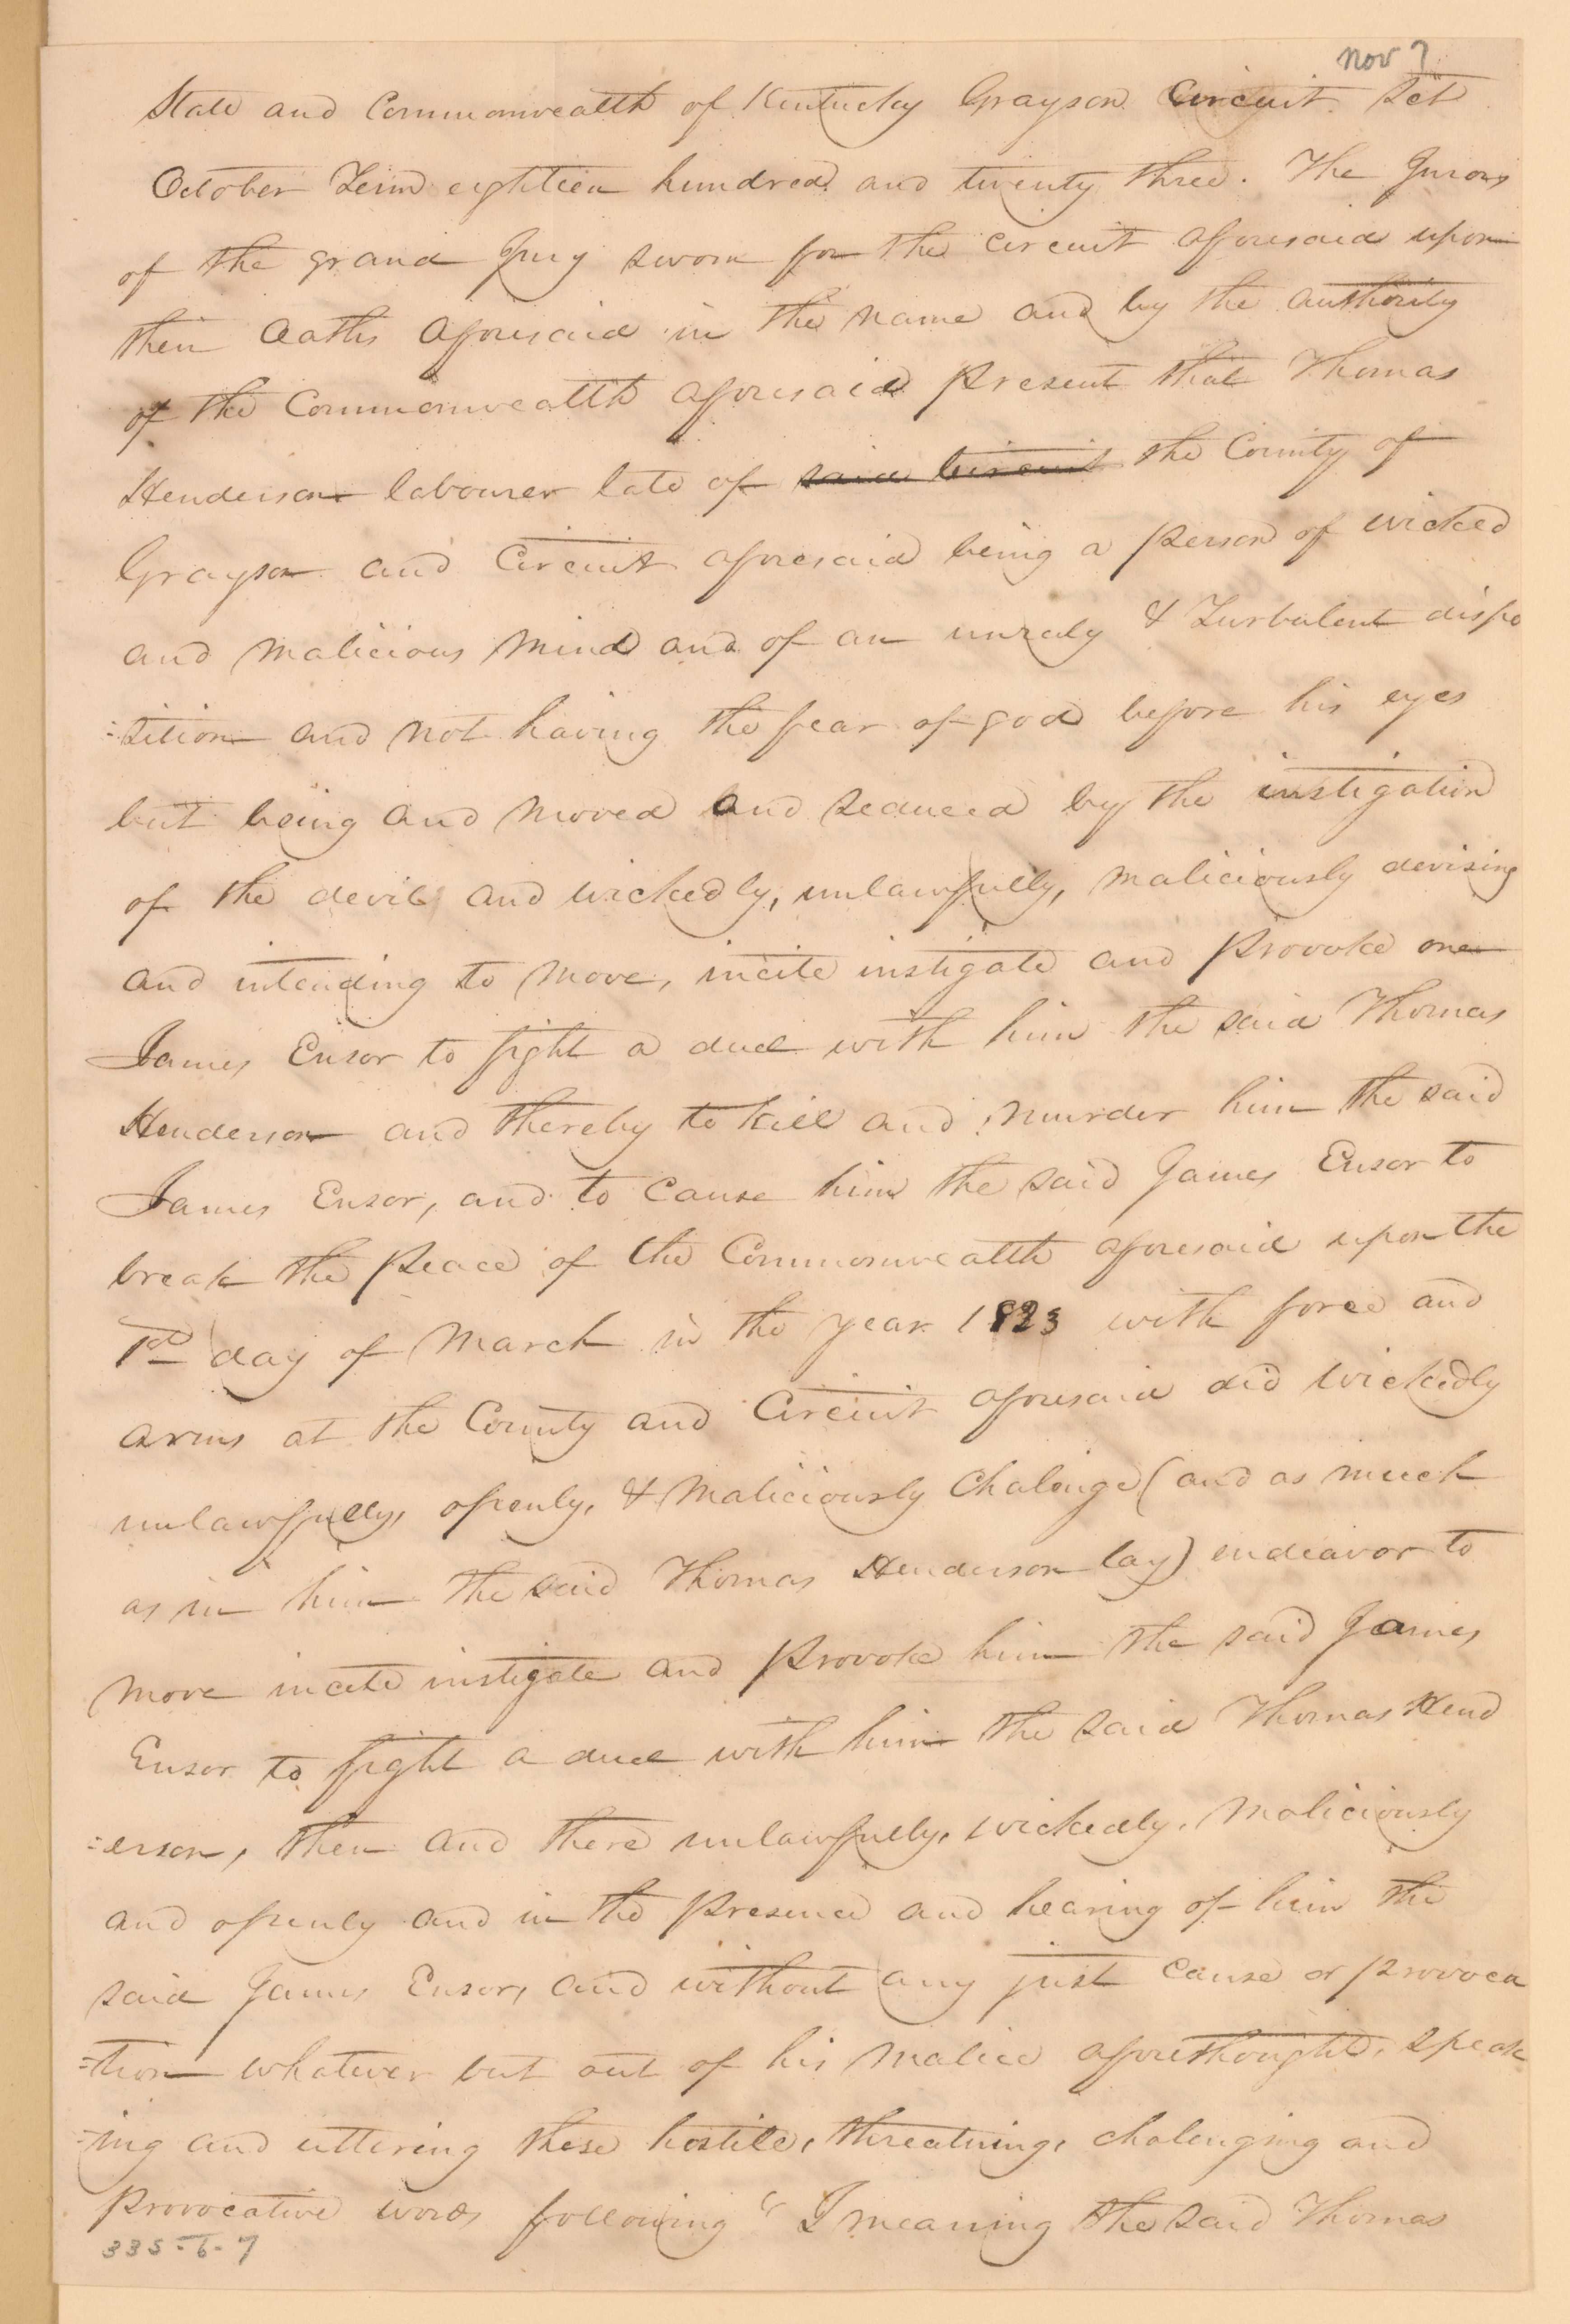 Nov 7
State and Commonwealth of Kentucky Grayson Circuit Sct
October Term eighteen hundred and twenty three. The Jurors
of the grand Jury sworn for the circuit aforesaid upon
their Oaths aforesaid in the name and by the authority
of the Commonwealth aforesaid present that Thomas
Henderson labourer late of said Circuit the County of
Grayson and Circuit aforesaid being a person of wicked
and malicious mind and of an unruly & Turbulent dispo
=sition and not having the fear of god before his eyes
but being and moved and seduced by the instigation
of the devil and wickedly, unlawfully, maliciously devising
and intending to move, incite instigate and provoke one
James Ensor to fight a duel with him the said Thomas
Henderson and thereby to kill and murder him the said
James Ensor, and to cause him the said James Ensor to
break the peace of the Commonwealth aforesaid upon the
1st day of March in the year 1823 with force and
arms at the County and Circuit aforesaid did wickedly
unlawfully, openly, & maliciously Chalenge (and as much
as in him the said Thomas Henderson lay) endeavor to
move incite instigate and provoke him the said James
Ensor to fight a duel with him the said Thomas Hend
=erson, then and there unlawfully, wickedly, maliciously
and openly and in the presence and hearing of him the
said James Ensor, and without any just cause or provoca
=tion whatever but out of his malice aforethought, speak
=ing and uttering these hostile, threatning, chalenging and
provocative words following " I meaning the said Thomas
335-6-7